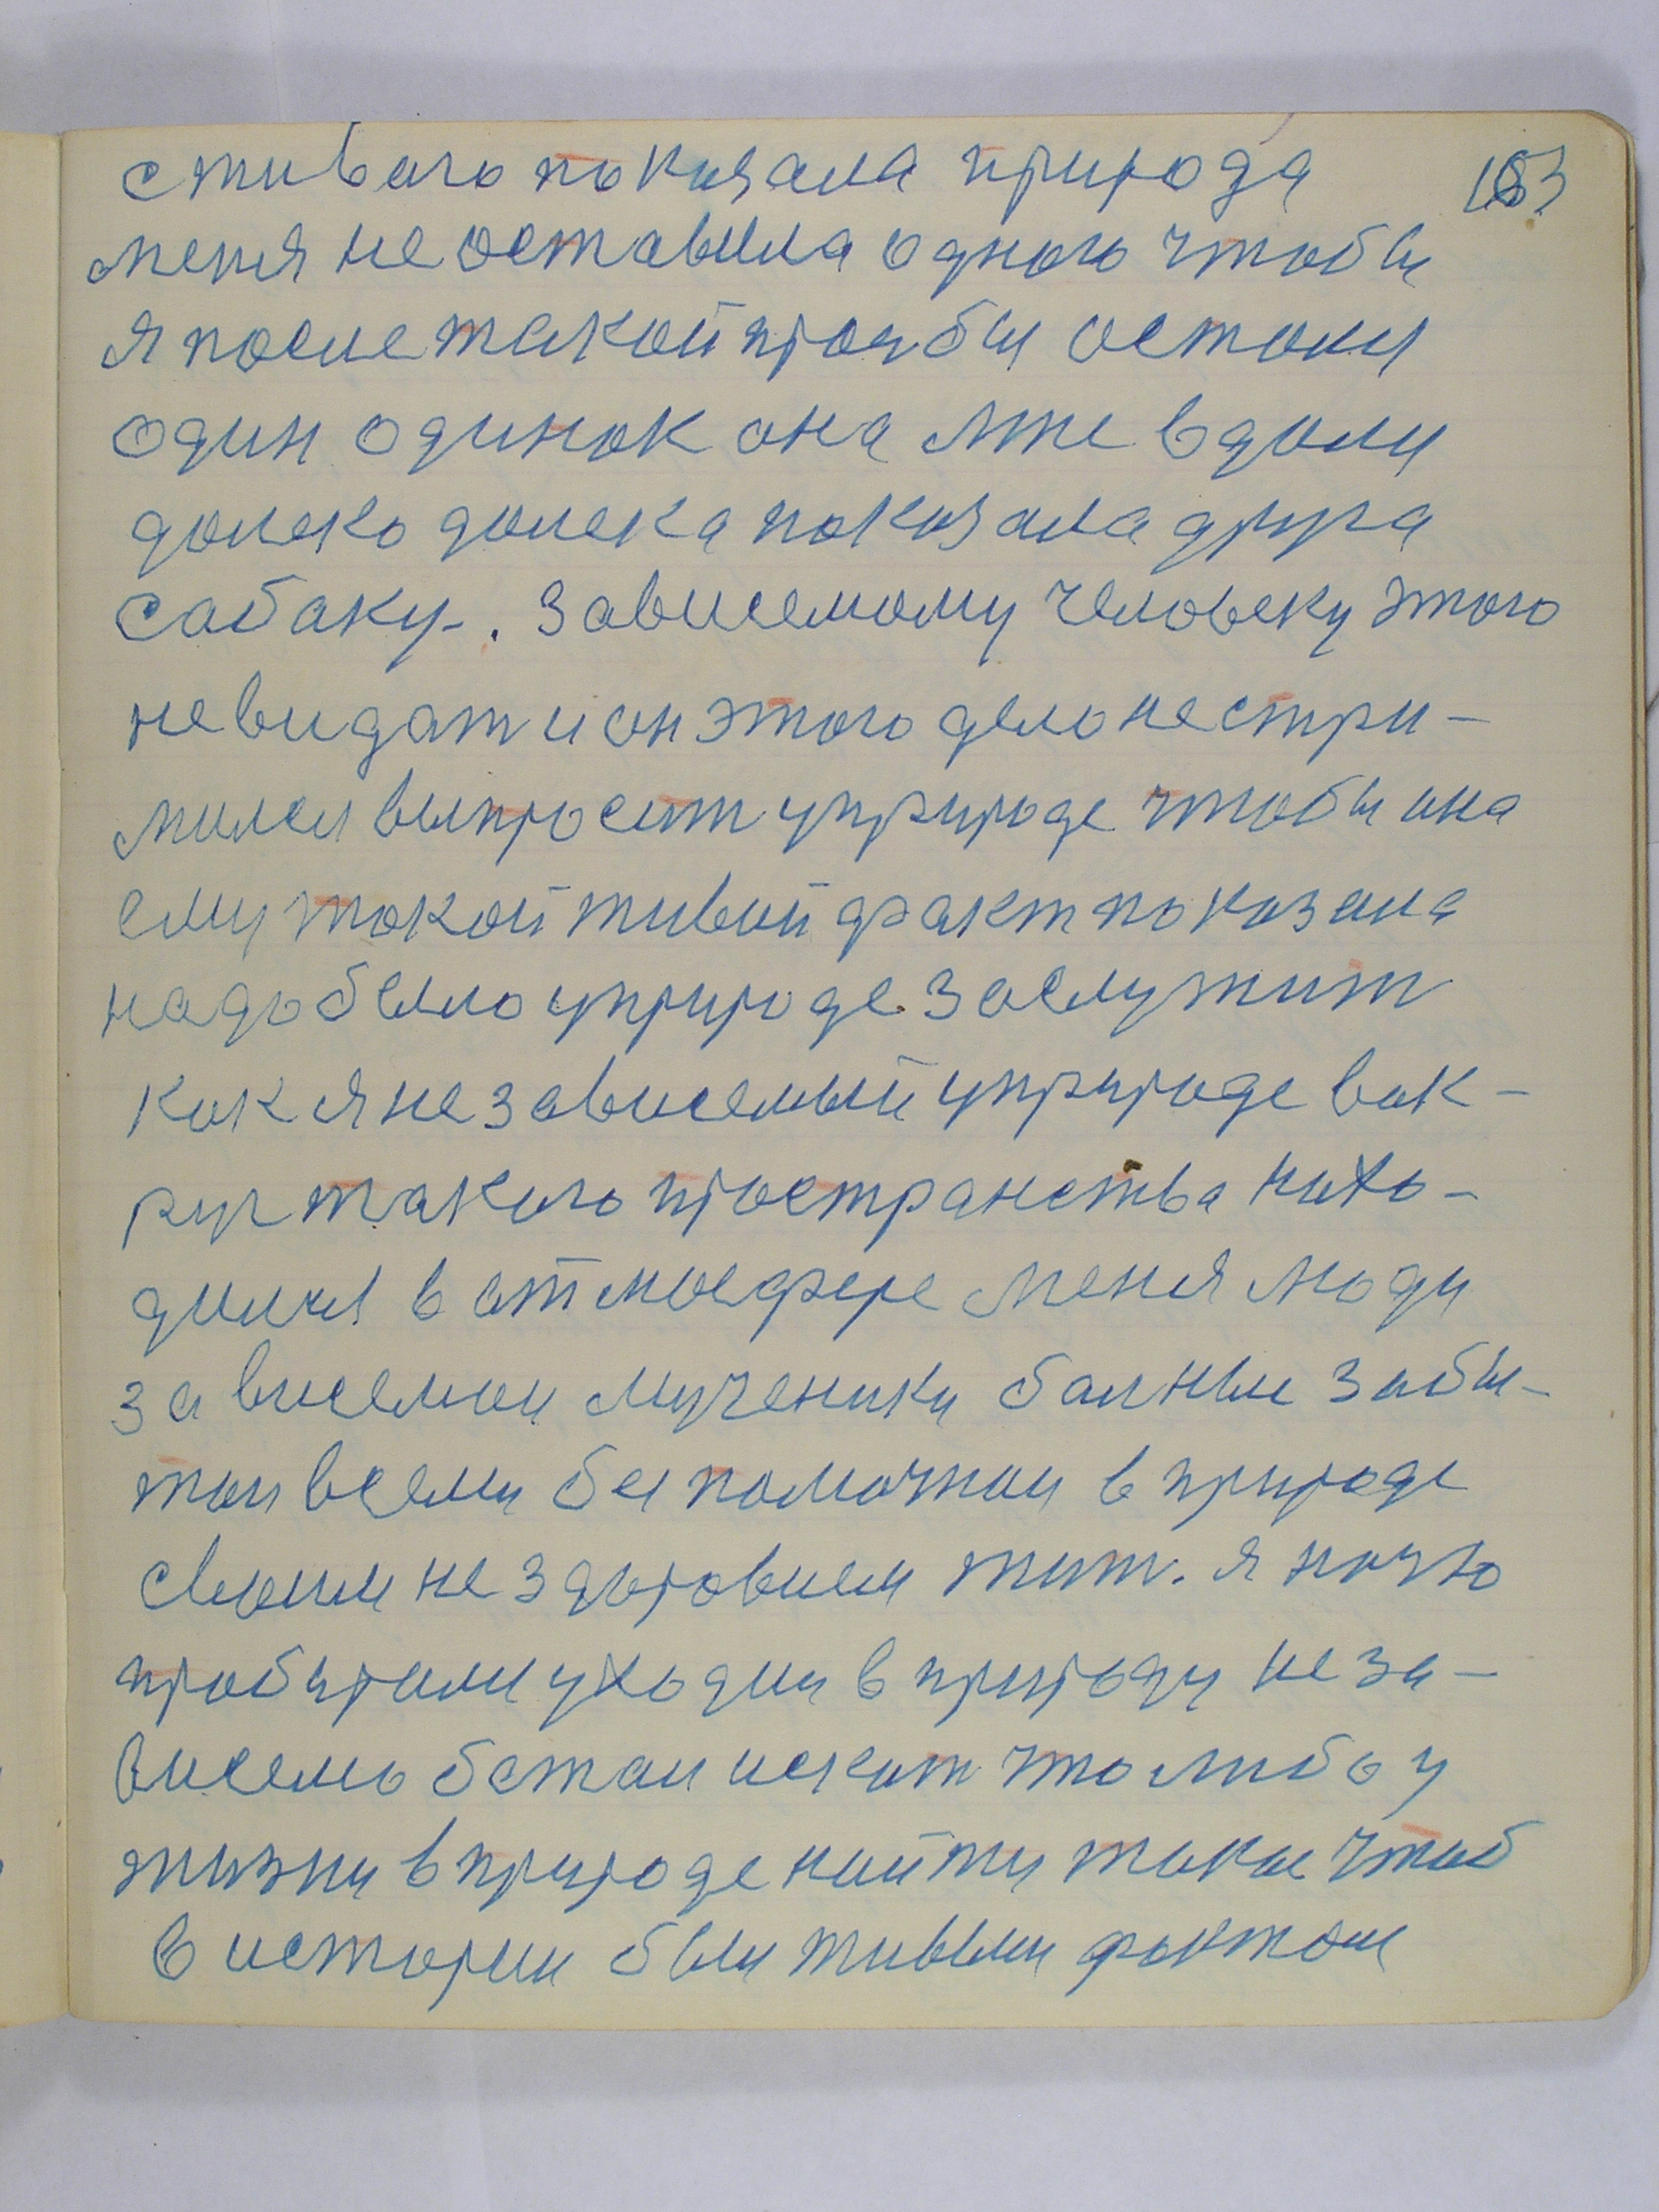 с живого показала природа 163
меня не оставила одного чтобы
я после такой прозбы осталя
один одинок она мне вдали
далеко далека показала друга
сабаку. Зависемому человеку этого
невидат и он этого дело нестри-
милси выпросит уприроде чтобы она
ему такой живой факт показала
надо было уприроде заслужит
как я независемый уприроде вок-
руг такого пространства нахо-
дился в атмосфере меня люди
зависемои мученики балные забы-
тои всеми беспомочнои в природе
своим нездоровием жит. я ночю
пробиралси уходил в природу неза-
висемо бежал искат что либо у
жизни в природе найти такое чтоб
в истории был живым фактом